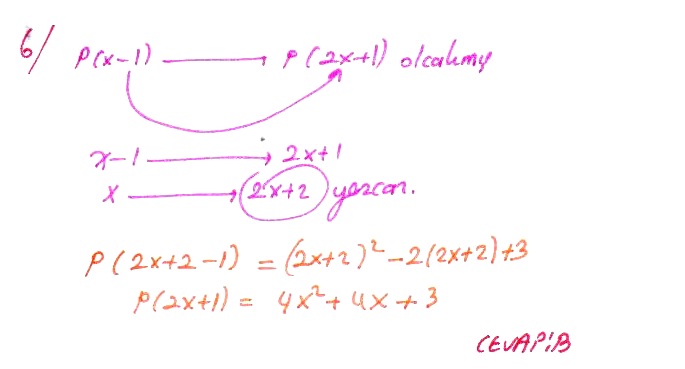 6/ P(x-1) → P(2x+1) olcakmış
x-1 → 2x+1
x → 2x+2 yazcan.
P(2x+2-1) = (2x+2)² - 2(2x+2)+3
P(2x+1) = 4x² + 4x + 3
CEVAP:B